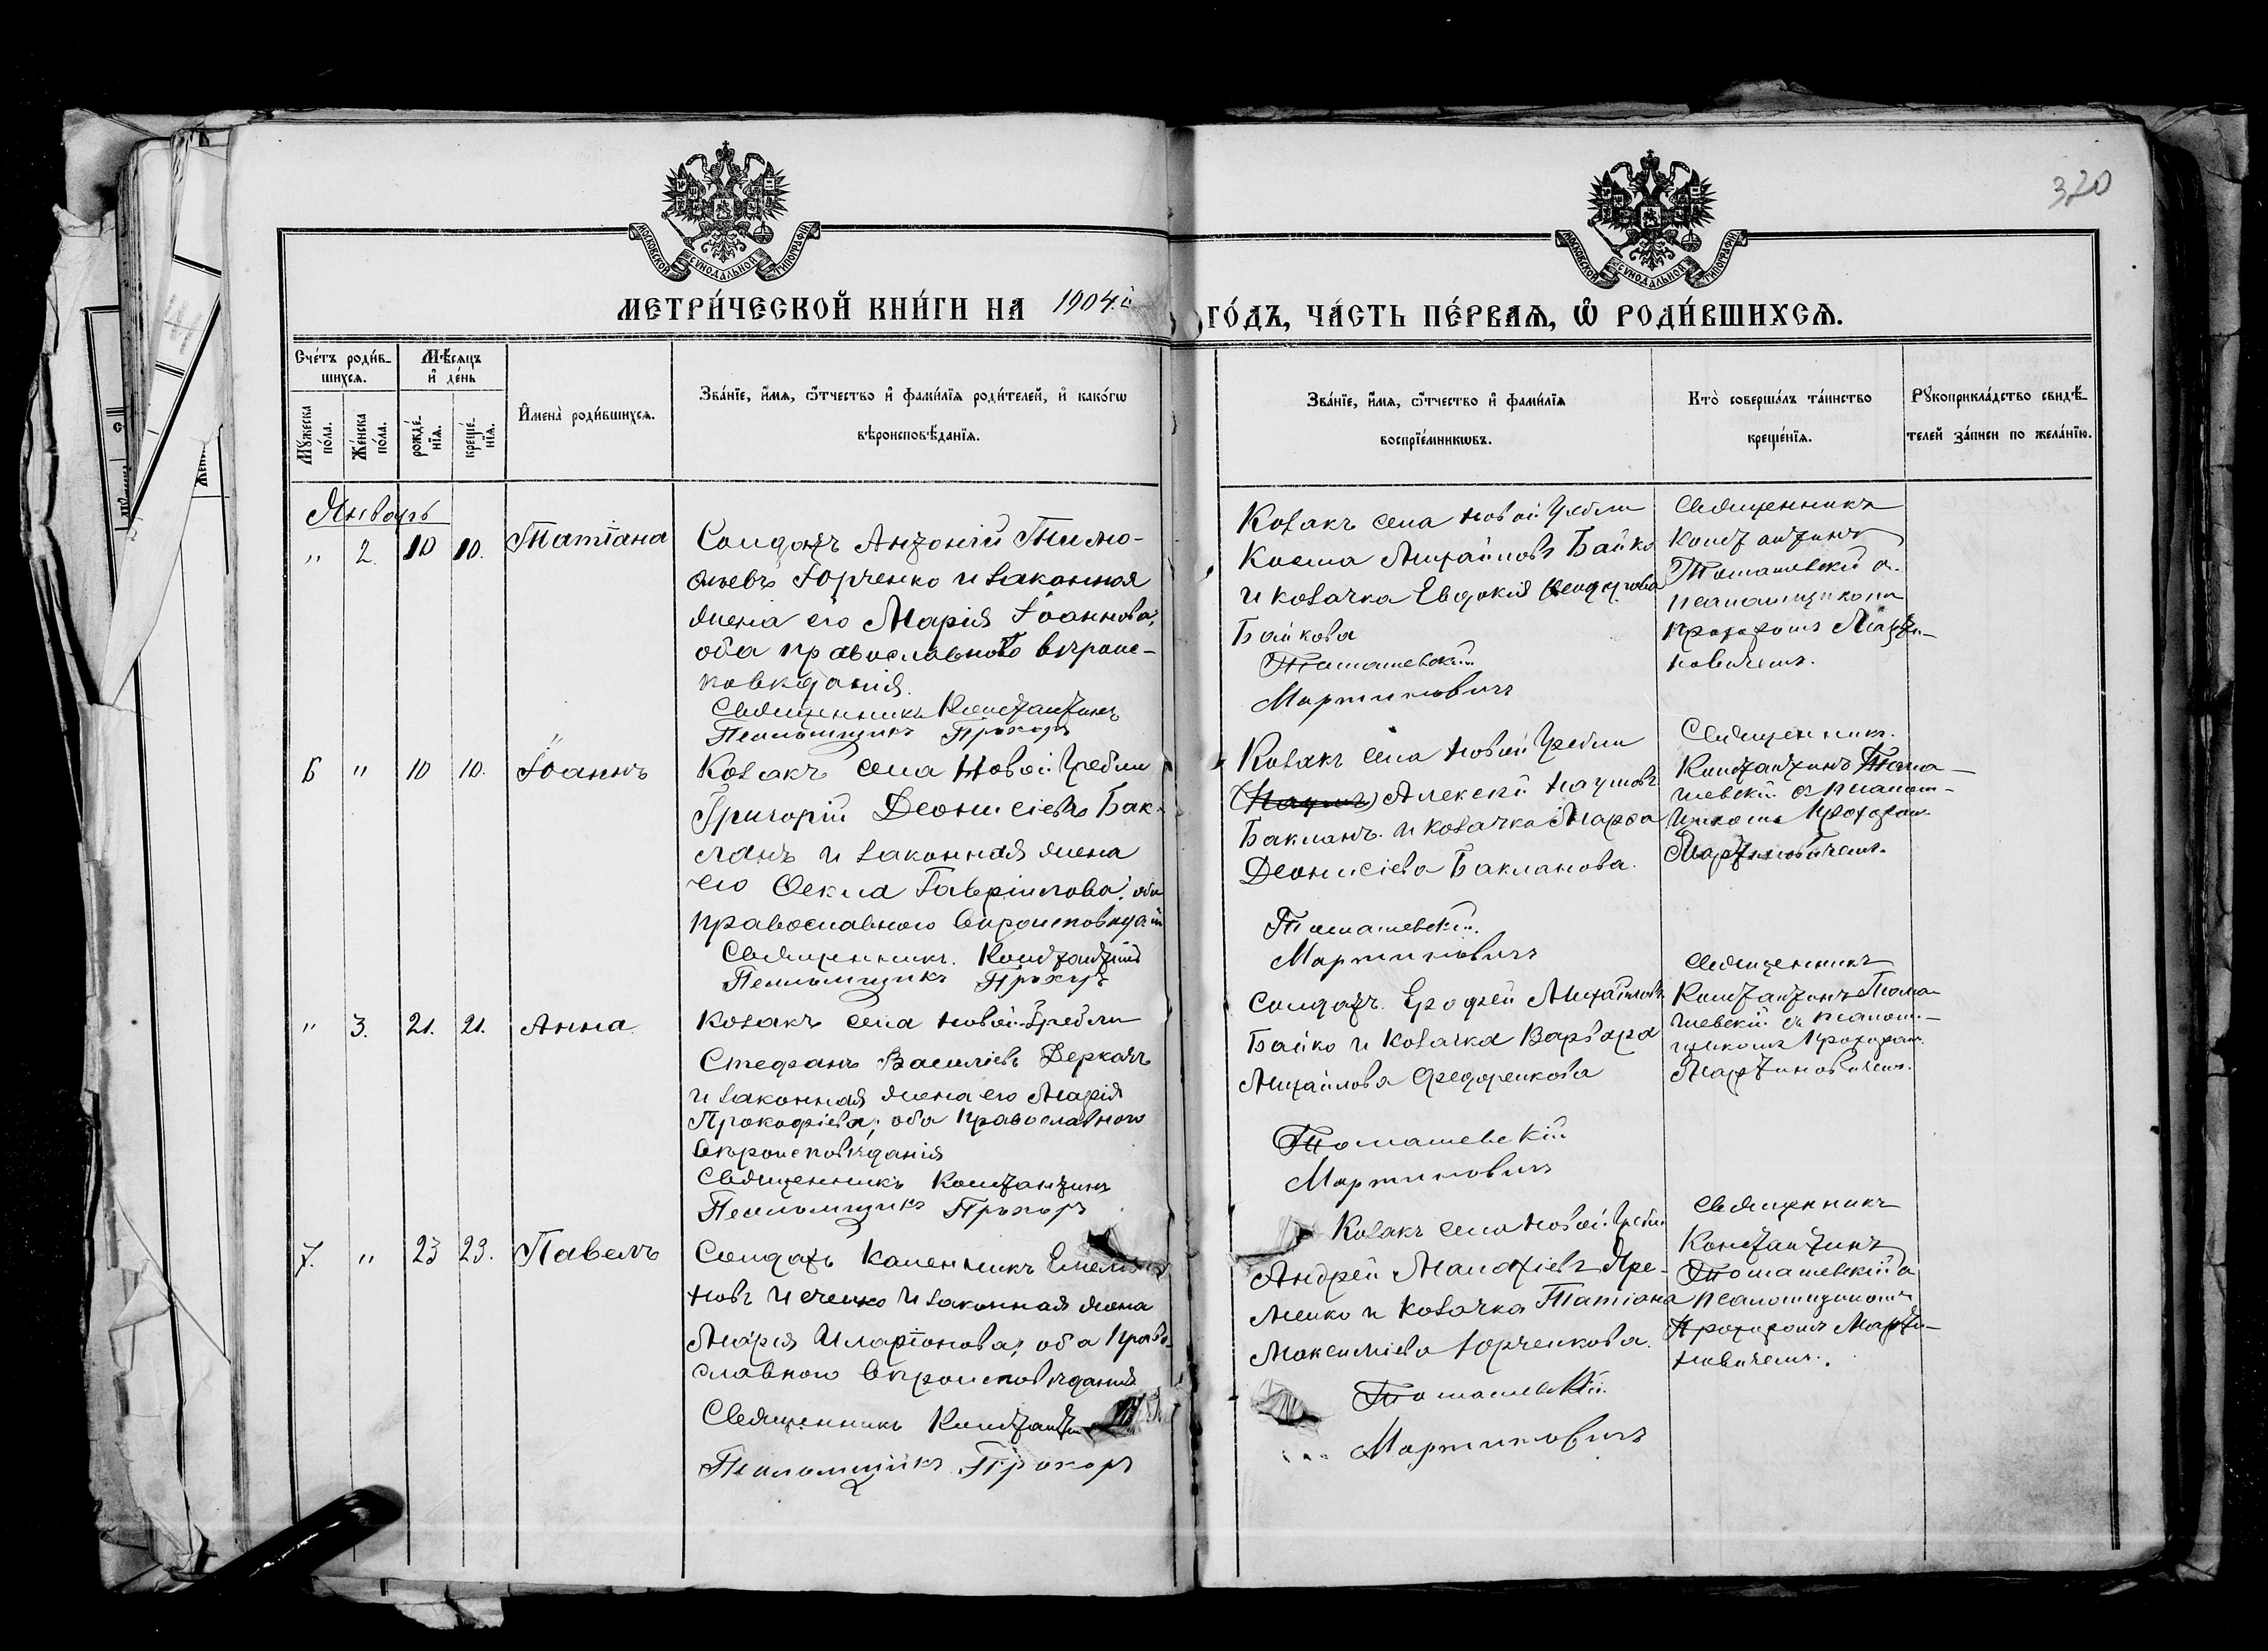 320
МОСКОВСКОЙ СѴНОДАЛЬНОЙ ТИПОГРАФІИ
МОСКОВСКОЙ СѴНОДАЛЬНОЙ ТИПОГРАФІИ
МЕТРИ́ЧЕСКОЙ КНИ́ГИ НА 1904.й
ГО́ДЪ, ЧА́СТЬ ПЕ́РВАѦ, Ѡ РОДИ́ВШИХСѦ.
Сче́тъ роди́в-
шихсѧ.
Мѣ́сѧцъ
и҆ де́нь
Мꙋ́жеска
по́ла.
Же́нска
по́ла.
рожде́-
нїѧ.
креще́-
нїѧ.
И҆мена̀ роди́вшихсѧ.
Зва́нїе, и҆́мѧ, ѻ҆́тчество и҆ фами́лїѧ роди́телей, и҆ како́гѡ
вѣроисповѣ́данїѧ.
Зва́нїе, и҆́мѧ, ѻ҆́тчество и҆ фами́лїѧ
воспрїе́мникѡвъ.
Кто̀ соверша́лъ та́инство
креще́нїѧ.
Рꙋкоприкла́дство свидѣ́-
телей за́писи по жела́нїю.
Январь
" 2. 10 10. Татіана
Солдатъ Антоній Тимо-
ѳьевъ Юрченко и законная
жена его Марія Іоаннова;
оба православного вѣроис-
повѣданія.
Священникъ Константинъ
Псаломщикъ Прохоръ
Козакъ села Новой Гребли
Косма Михайловъ Байко
и козачка Евдокія
Байкова
Томашевскій
Мартиновичъ
Священникъ
Константинъ
Томашевскій съ
псаломщикомъ
Прохоромъ Марти-
новичемъ.
6 " 10 10. Іоаннъ
Козакъ села Новой Гребли
Григорій Деонисіевъ Бак-
ланъ и законная жена
его Ѳекла Гавріилова; оба
православного вѣроисповѣдан
Священникъ. Константинъ
Псаломщикъ Прохоръ
Козакъ села Новой Гребли
(Наумъ) Алексѣй Наумовъ
Бакланъ и козачка Марѳа
Деонисіева Бакланова.
Томашевскій.
Мартиновичъ
Священникъ.
Константинъ Тома-
шевскій съ псалом-
щикомъ Прохоромъ
Мартиновичемъ.
" 3. 21. 21. Анна
Козакъ села Новой Гребли
Стефанъ Василіевъ Деркачъ
и законная жена его Марія
Прокофіева; оба православного
вѣроисповѣданія
Священникъ Константинъ
Псаломщикъ Прохоръ
Солдатъ Ерофей Михайловъ
Байко и козачка Варвара
Михайлова Федоренкова
Томашевскій
Мартиновичъ
Священникъ
Константинъ Тома-
шевскій съ псалом-
щикомъ Прохоромъ
Мартиновичемъ.
7. " 23 23. Павелъ
Солдатъ Каленникъ Емелія
новъ и законная жена
Марія Иларіонова; оба право-
славного вѣроисповѣданія
Священникъ Константин
Псаломщикъ Прохоръ
Козакъ села Новой Гребли
Андрей Яре-
менко и козачка Татіана
Максиміева Юрченкова.
Томашевскій.
Мартиновичъ
Священникъ
Константинъ
Томашевскій съ
псаломщикомъ
Прохоромъ Марти-
новичемъ.